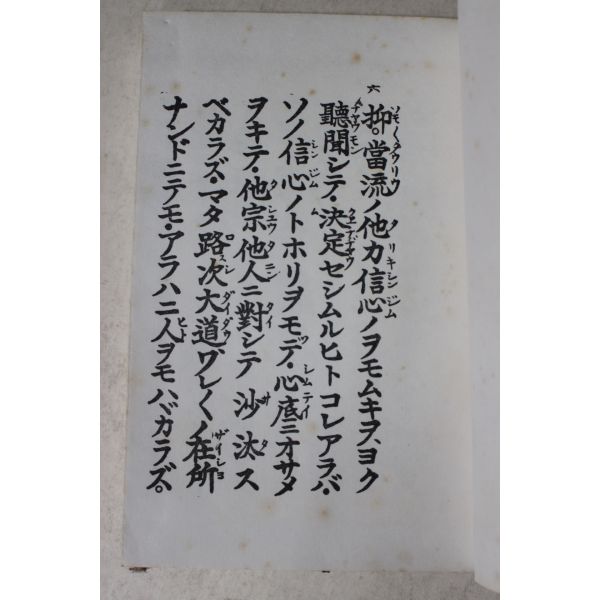 六
抑。當流ノ他力信心ノヲモムキヲ、ヨク
聽聞シテ・決定セシムルヒトコレアラバ・
ソノ信心ノトホリヲモテ・心底ニオサメ
ヲキテ・他宗他人ニ對シテ沙汰ス
ベカラズ・マタ路次大道ワレ〱ノ在所
ナンドニテモ・アラハニ人ヲモハバカラズ。